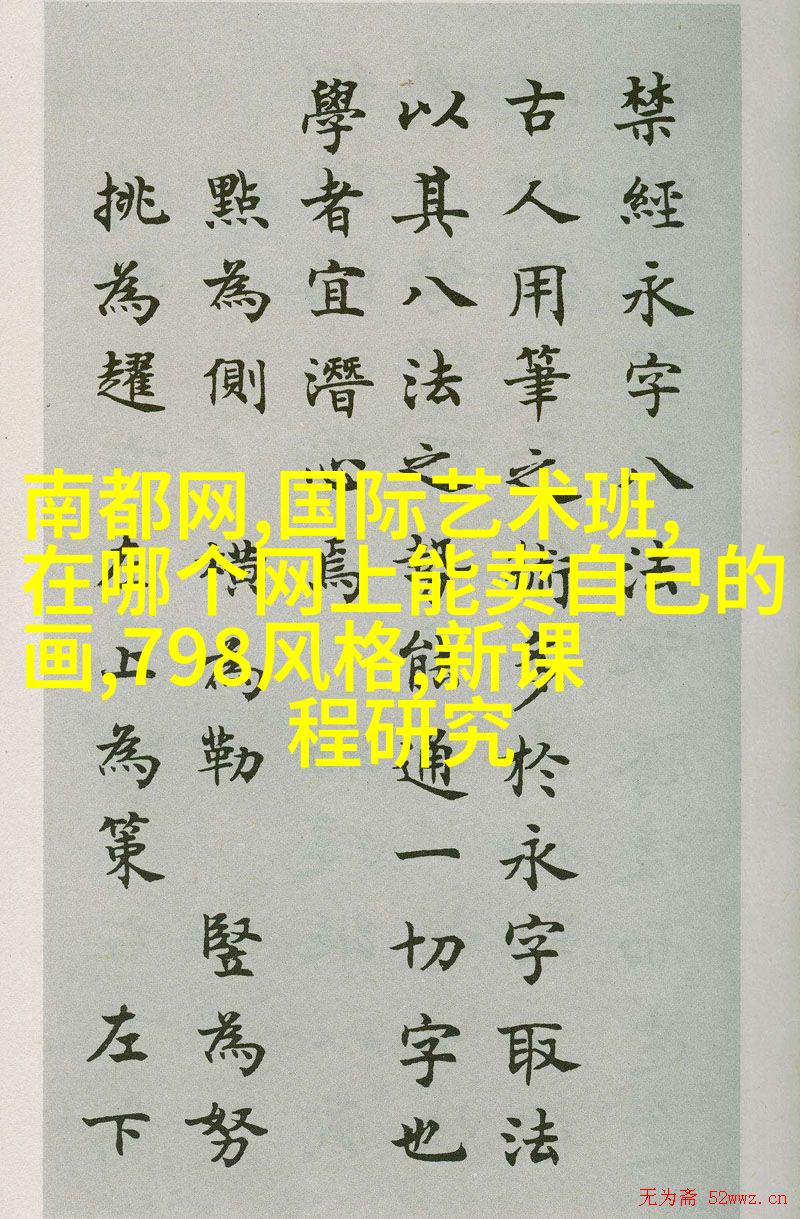 禁經永字八法
古人用筆之術多於永字取法
以其八法之勢能通一切字也
學者宜潛心焉
點為側 橫為勒 豎為努
挑為趯 左上為策 左下
南都网,国际艺术班,
在哪个网上能卖自己的
画,798风格,新课
程研究
无为斋 52wwz.cn